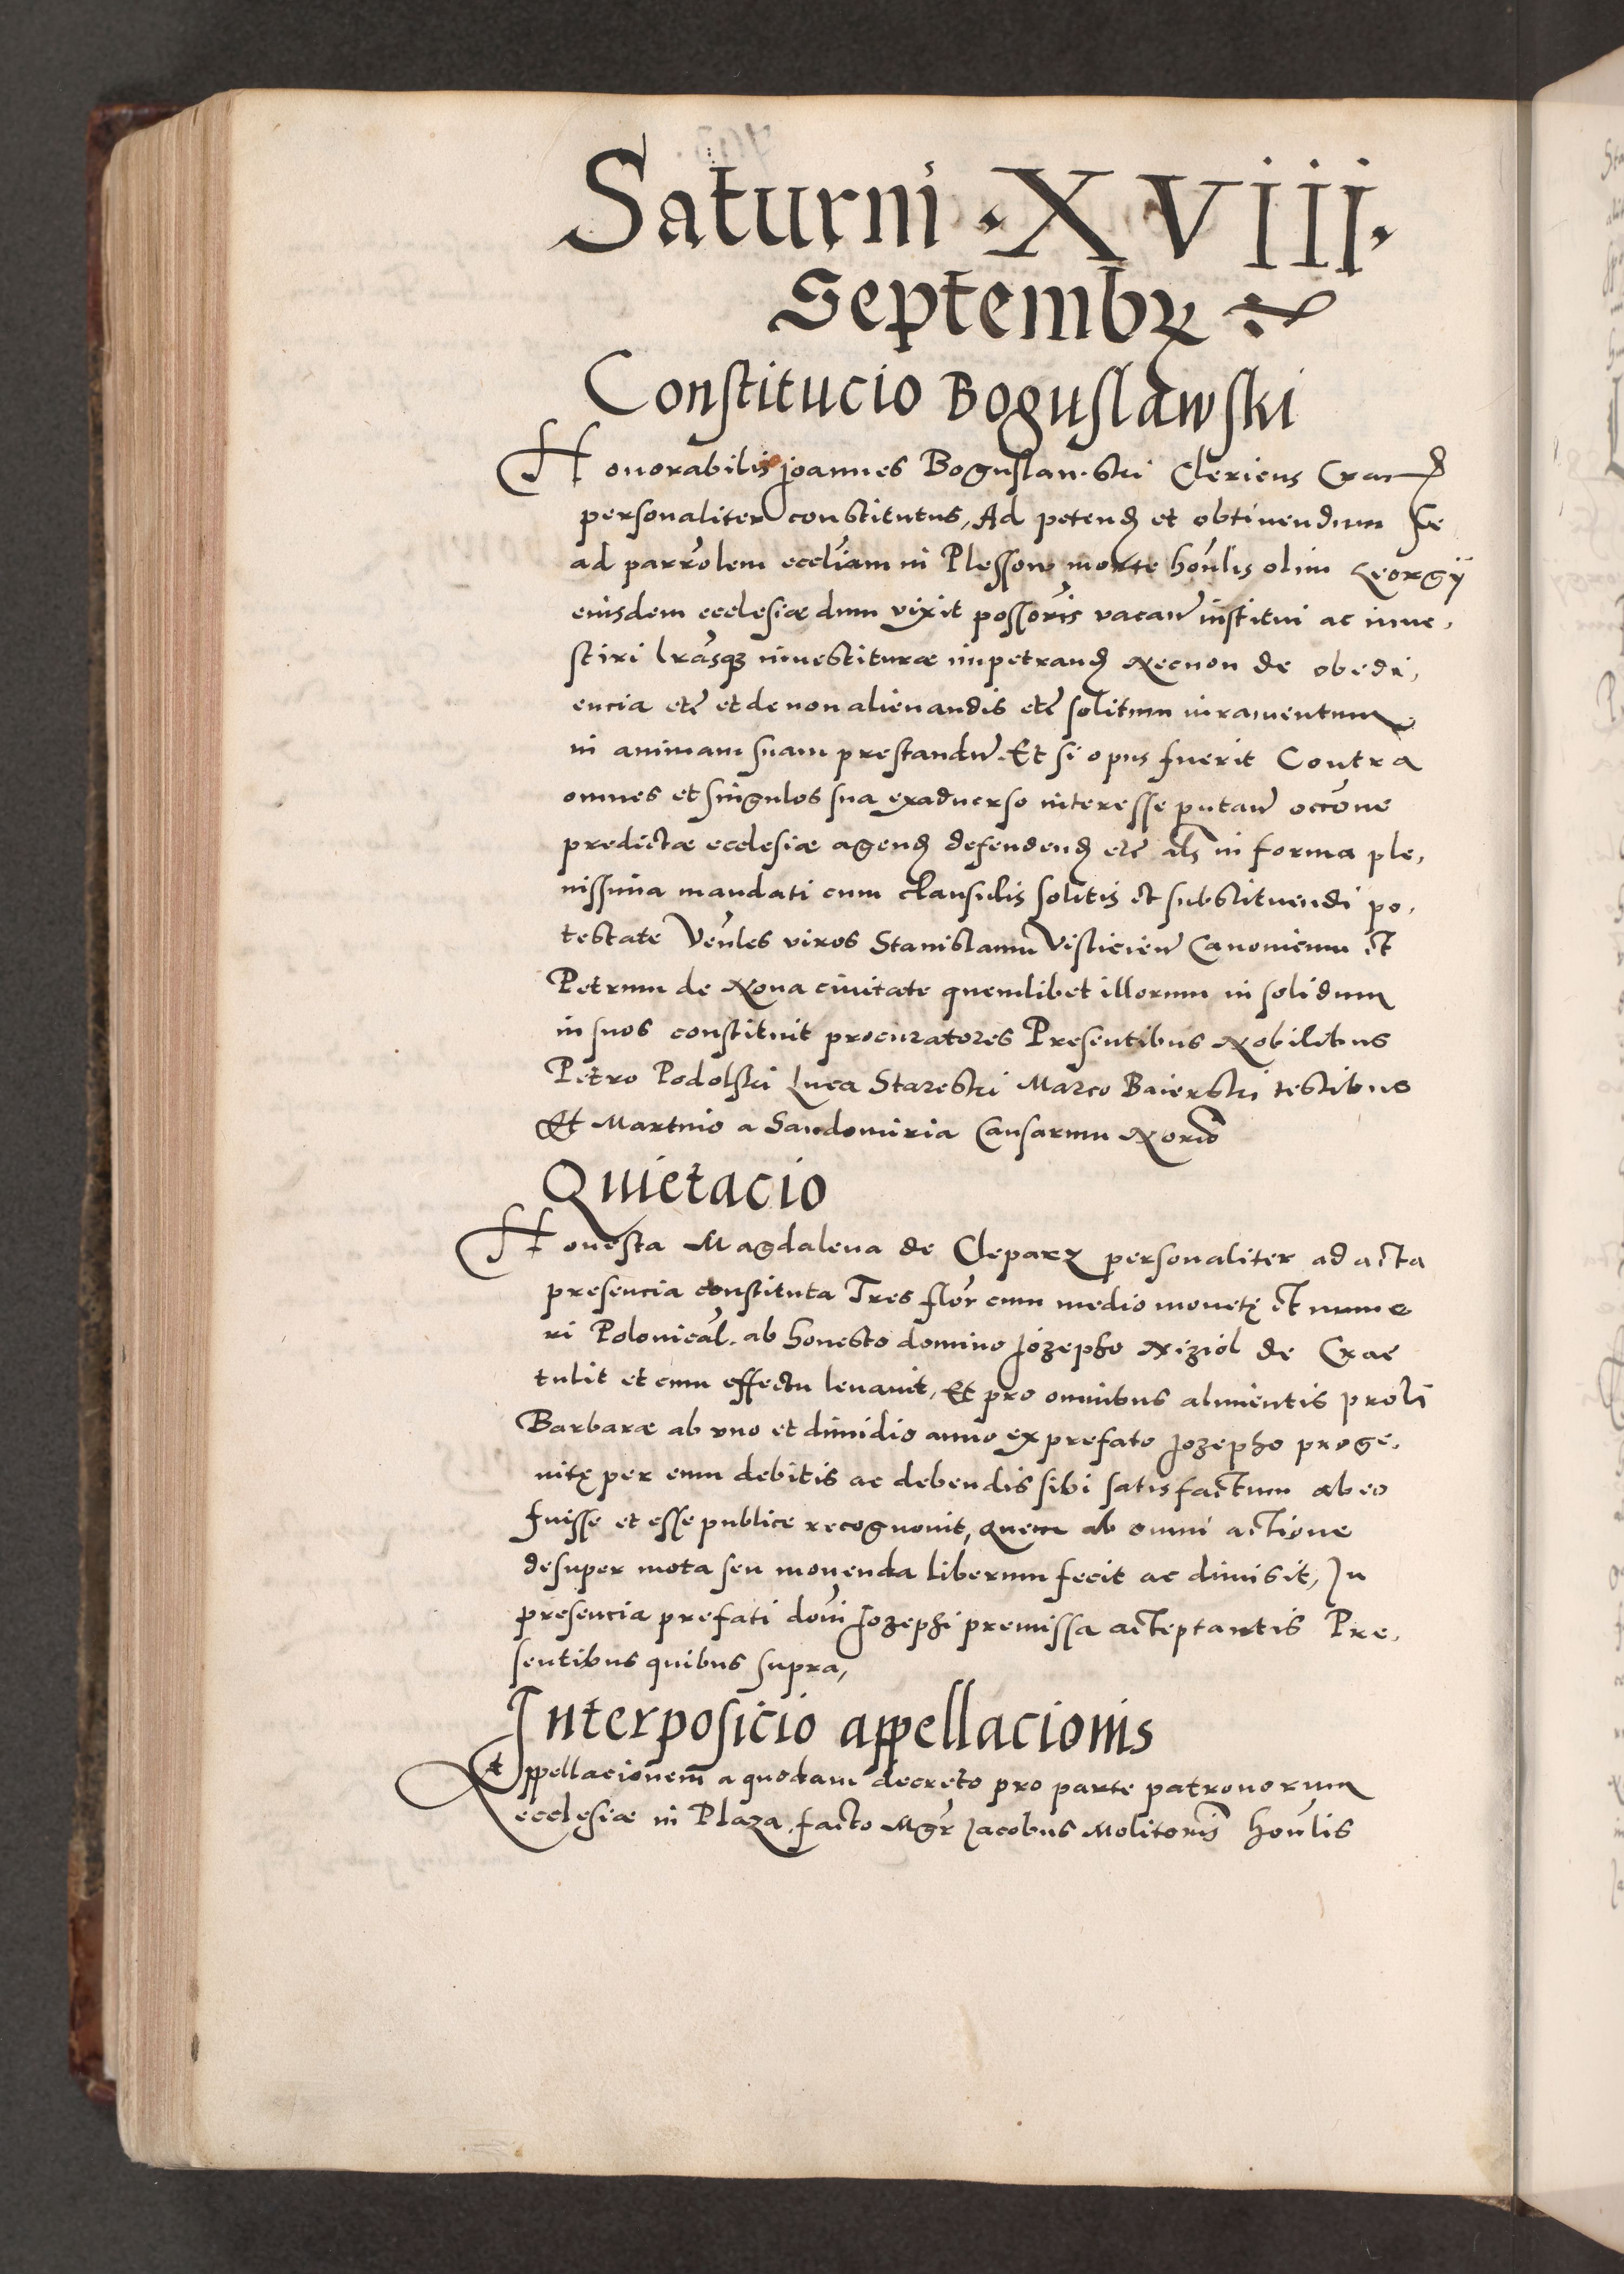 Saturni · XVIII ·
Septembr
Constitucio Boguslawski
Honorabilis Joannes Boguslaw·ski Clericus Crac
personaliter constitutus, Ad petend et obtinendum se
ad parrolem eccliam in Plessow morte honlis olim Georgÿ
eiusdem ecclesiæ dum vixit possoris vacan institui ac inue,
stiri lrasque inuestituræ impetrand Necnon de obedi,
encia etc et de non alienandis etc solitum iuramentum
in animam suam prestandum. Et si opus fuerit Contra
omnes et singulos sua exaduerso interesse putan occone
predictæ ecclesiæ agend defendend etc als in forma ple,
nissima mandati cum clausulis solitis et substituendi po,
testate Venles viros Stanislaum Visliciem Canonicum et
Petrum de Noua ciuitate quemlibet illorum in solidum
in suos constituit procuratores Presentibus Nobilibus
Petro Podolski Luca Stareski Marco Baierski testibus
Et Martino a Sandomiria Causarum Norio
Quietacio
Honesta Magdalena de Cleparz personaliter ad acta
presencia constituta Tres flor cum medio monetę et nume
ri Polonical. ab honesto domino Jozepho Niziol de Crac
tulit et cum effectu leuauit, Et pro omnibus alimentis proli
Barbaræ ab vno et dimidio anno ex prefato Jozepho proge,
nitę per eum debitis ac debendis sibi satisfactum ab eo
fuisse et esse publice recognouit, quem ab omni actione
desuper mota seu mouenda liberum fecit ac dimisit, In
presencia prefati doni Jozephi premissa acceptantis Pre,
sentibus quibus supra,
Interposicio appellacionis
Appellacionem a quodam decreto pro parte patronorum
ecclesiæ in Plaza facto Mgr Jacobus Molitoris honlis